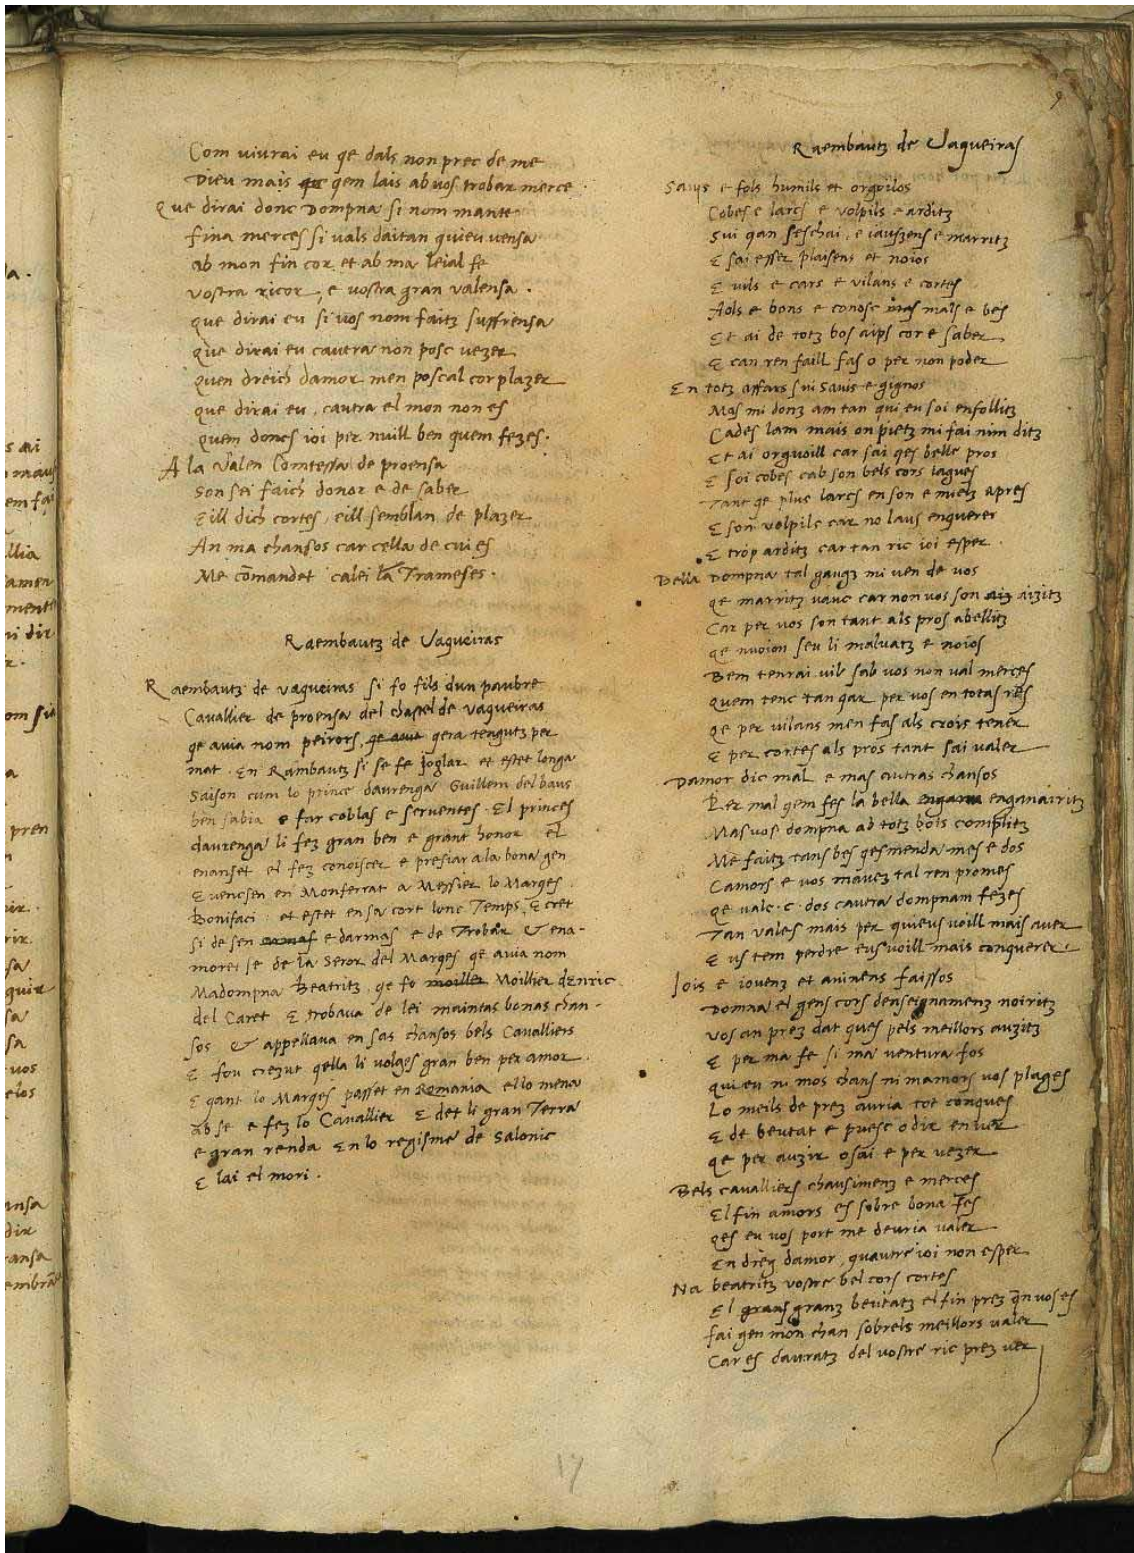 Com viurai eu qe dals non prec de me
Dieu mais qem lais ab vos trobar merce
Que dirai donc Dompna si nom mante
fina merces si vals daitan quieu vensa
ab mon fin cor et ab ma leial fe
vostra ricor, e vostra gran valensa.
que dirai eu si vos nom faitz suffrensa
que dirai eu cautra non posc vezer
quen dreich damor men poscal cor plazer
que dirai eu, cautra el mon non es
quem doncs ioi per nuill ben quem fezes.
A la Valen Comtessa de proensa
Son sei faich donor e de saber
Eill dich cortes, eill semblan de plazer
An ma chansos car cella de cui es
Me cõmandet calei la Trameses.
Raembautz de Vaqueiras
Raembautz de vaqueiras si fo fils dun paubre
Cavallier de proensa del chastel de vaqueiras
qe avia nom peirors, qe avia qera tengutz per
mat. En Rambautz si se fe joglar et estet longa
Saison cum lo prince daurenga Guillem del baus
ben sabia e far coblas e serventes. El princes
daurenga li fez gran ben e grant honor el
enanset el fez conoiscer e presiar a la bona gen
E vencsen en Monferrat a Messier lo Marqes
Bonifaci. et estet en sa cort lonc Temps, E cret
si de sen armas e darmas e de Trobar Et ena-
moret se de la Seror del Marqes qe avia nom
Madompna Beatritz, qe fo moiller Moillier dEnric
del Caret E trobava de lei maintas bonas chan-
sos Et appellava en sas chansos bels Cavalliers
E fou crezut qella li volges gran ben per amor.
E qant lo Marqes passet en Romania el lo mena
ab se e fez lo Cavallier E det li gran Terra
e gran renda En lo regisme de Salonic
E lai el mori.
9
Raembautz de Vaqueiras
Savis e fols humils et orgoilos
Cobes e larcs e volpils e arditz
Sui qan seschai, e iausens e marritz
E sai esser plaisens et noios
E vils e cars e vilans e cortes
Aols e bons e conosc mas mals e bes
Et ai de totz bos aips cor e saber
E can ren faill fas o per non poder
En totz affars sui savis e gignos
Mas mi donz am tan qui eu soi enfollitz
Cades lam mais on pietz mi fai nim ditz
Et ai orguoill car sai qes belle pros
E soi cobes cab son bels cors iagues
Tant qe plus larcs en son e mielz apres
E son volpils car no laus enquerer
E trop arditz car tan ric ioi esper.
Bella Dompna tal gaugz mi ven de vos
qe marritz vauc car non vos son aiz aizitz
Car per vos son tant als pros abellitz
qe nuoion seu li malvatz e noios
Bem tenrai vil sab vos non val merces
quem tenc tan qar per vos en totas res
qe per vilans men fas als crois tener
E per cortes als pros tant sai valer
Damor dic mal e mas autras chansos
Per mal qem fes la bella enganairitz
Mas vos dompna ab totz bols complitz
Me faitz tans bes qesmenda mes e dos
Camors e vos mavez tal ren promes
qe valc. c. dos cautra dompnam fezes
Tan vales mais per quieus voill mais aver
E us tem perdre eus voill mais conquerer.
Iois e iovenz et avinens faissos
Domna el gens cors densseignamenz noiritz
Vos an prez dat ques pels meillors auzitz
E per ma fe si ma ventura fos
qui eu ni mos chans ni mamors vos plages
Lo meils de prez auria tot conques
E de beutat e puesc o dir en ver
qe per auzir o sai e per vezer
Bels cavalliers chausimenz e merces
El fin amors es sobre bona fes
qes eu vos port me deuria valer
En dreg damor, quautre ioi non esper
Na beatritz vostre bel cors cortes
El grans granz beutatz el fin prez qen vos es
fai gen mon chan sobrels meillors valer
Car es dauratz del vostre ric prez ver
17